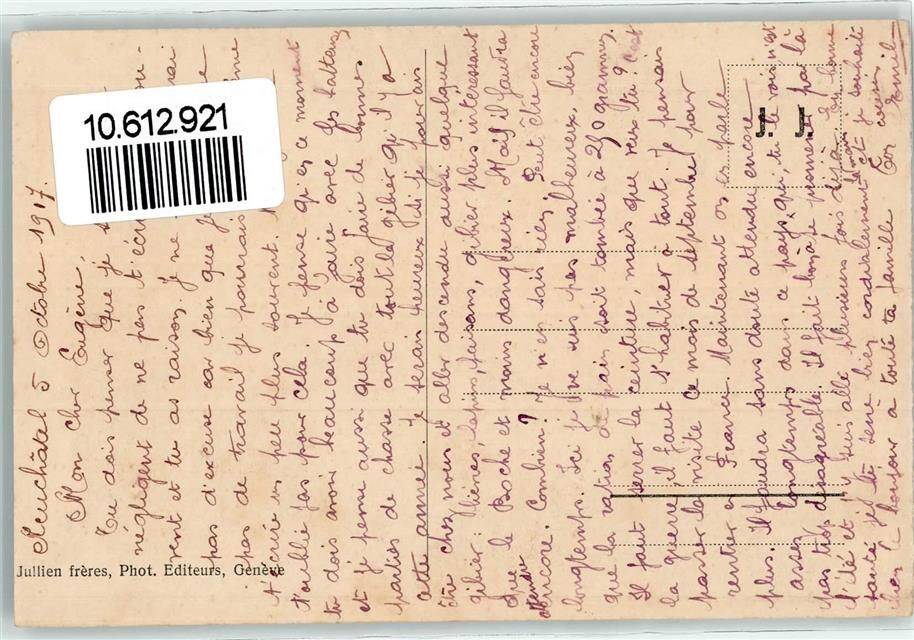 Neuchâtel 5 Octobre 1917.
Mon cher Eugène,
Tu dois penser que je
négligent de ne pas t'écri
vent et tu as raison. Je ne
pas d'excuse car bien que j'
pas de travail je pourrais
t'écrire un peu plus souvent.
t'oublie pas pour cela. Je pense qu'en ce moment
tu dois avoir beaucoup à faire avec les battages
et je pense aussi que tu dois faire de bonnes
parties de chasse avec tout le gibier qu'il y a
cette année. Je serais heureux si je pouvais
être chez nous et aller descendre aussi quelque
gibier: lièvres, lapins, faisans, gibier plus intéressant
que le Boche et moins dangereux. Mais il faudra
attendre encore. Combien? Je n'en sais rien. Peut être encore
longtemps. Ici je ne suis pas malheureux bien
que la ration de pain soit tombée à 250 grammes.
Il faut serrer la ceinture, mais que veux tu? C'est
la guerre, il faut s'habituer à tout. Je pensais
passer la visite ce mois de septembre pour
rentrer en France. Maintenant on en parle
plus. Il faudra sans doute attendre encore
assez longtemps dans ce pays qui, tu le vois n'est
pas très désagréable. Il fait bon se promener par là
l'été et j'y suis allé plusieurs fois déjà.
santé et je te serre bien cordialement
bien le bonjour à toute ta famille
Ton cousin
Emile
10.612.921
J. J.
Jullien frères, Phot. Editeurs, Genève